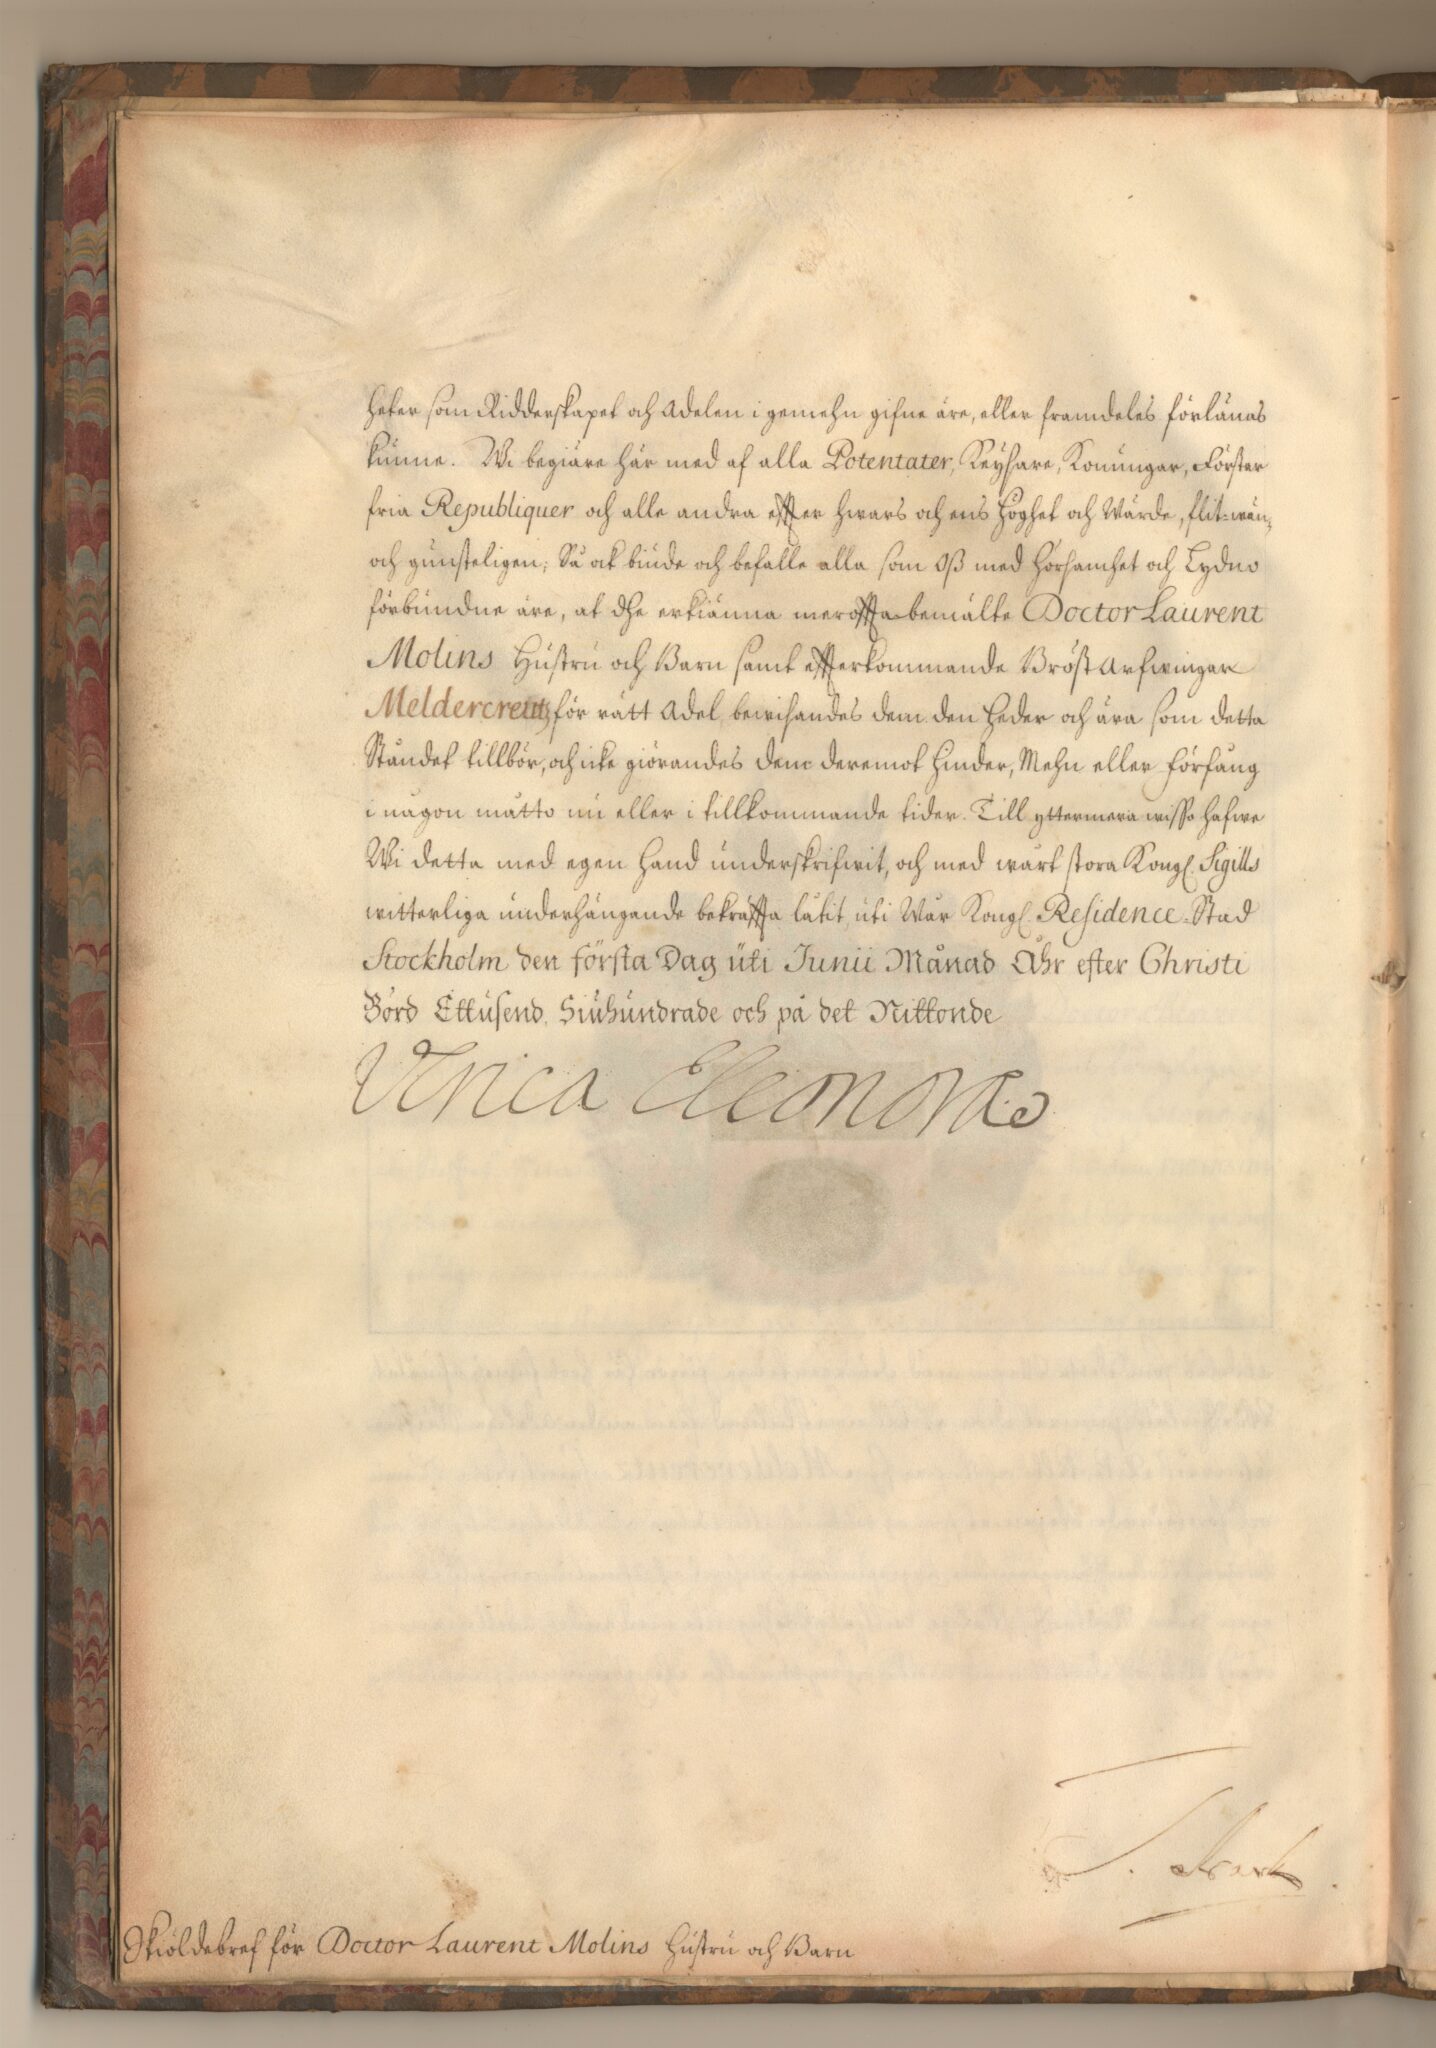 heter som Ridderskapet och Adelen i gemehn gifne äre, eller framdeles förlänas
kunne. Wi begiäre här med af alla Potentater, Keÿsare, Konungar, Förster
fria Republiquer och alle andra effter hwars och ens Höghet och Wärde, flit-wän-
och gunsteligen; Så ock biude och befalle alla som Oß med Hörsamhet och Lydno
förbundne äre, at dhe erkiänna meroffta-bemälte Doctor Laurent
Molins Hustru och Barn samt effterkommande Bröst Arfwingar
Meldercreutz för rätt Adel, bewisandes dem den Heder och ära som detta
Ståndet tillbör, och icke giörandes dem deremot Hinder, Mehn eller förfång
i någon måtto nu eller i tillkommande tider. Till yttermera wisso hafwe
Wi detta med egen Hand underskrifwit, och med wårt stora Kongl. Sigills
witterliga underhängande bekräffta låtit, uti Wår Kongl. Residence-Stad
Stockholm den första Dag uti Junii Månad Åhr efter Christi
Börd Ettusend, Siuhundrade och på det Nittonde
Vlrica Eleonora
Skiöldebref för Doctor Laurent Molins Hustru och Barn